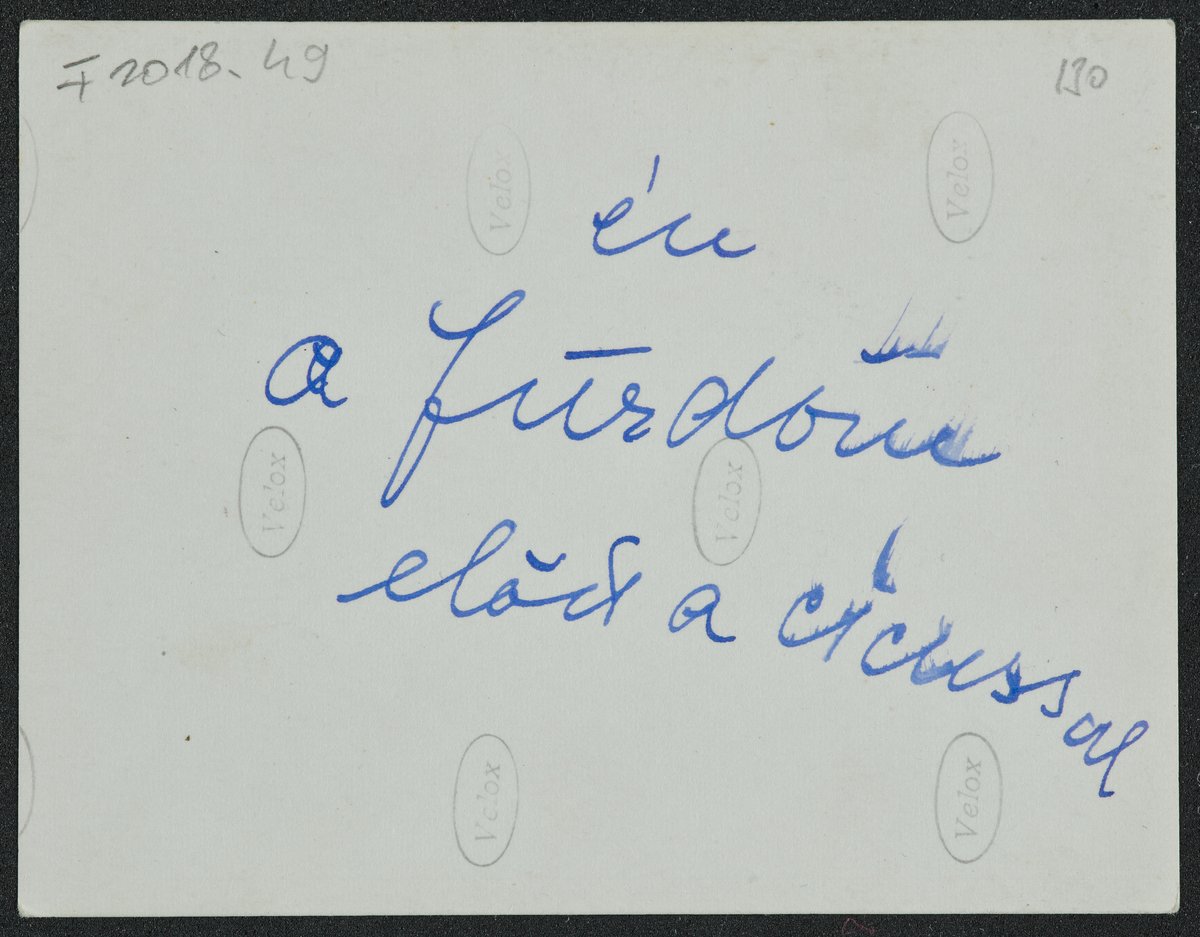 F 2018. 49
130
Velox
Velox
én
a
Velox
Velox
előtt a cicussal
Velox
Velox